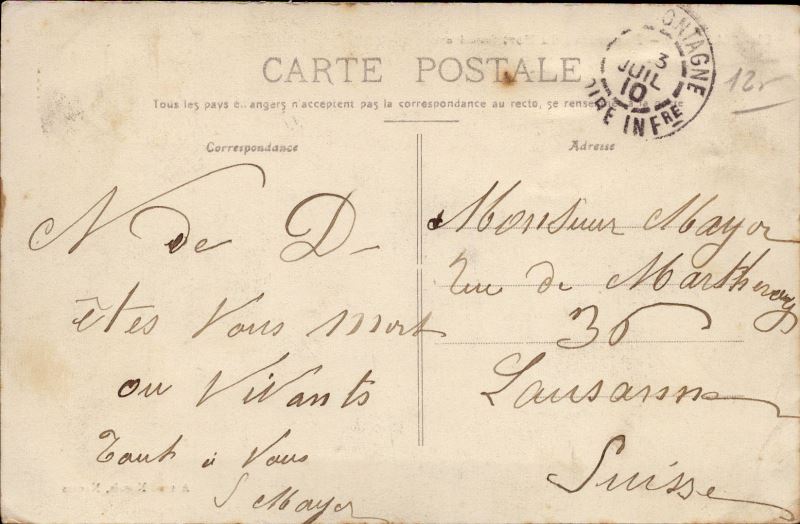 CARTE POSTALE
Tous les pays étrangers n'acceptent pas la correspondance au recto, se renseigner à la
Correspondance
N de D-
êtes Vous mort
ou Vivants
Tout à Vous
S Mayor
Adresse
Monsieur Mayor
rue de Martheray
36
Lausanne
Suisse
ONTAGNE
3
JUIL
10
OIRE INFRE
12r